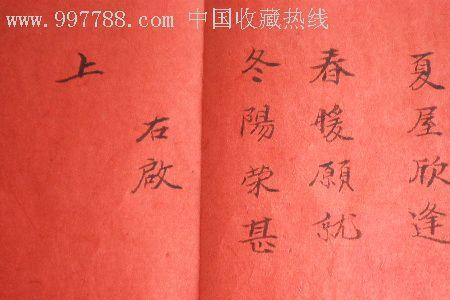 www.997788.com 中国收藏热线
夏屋欣逢
春暖願就
冬陽荣甚
右啟
上